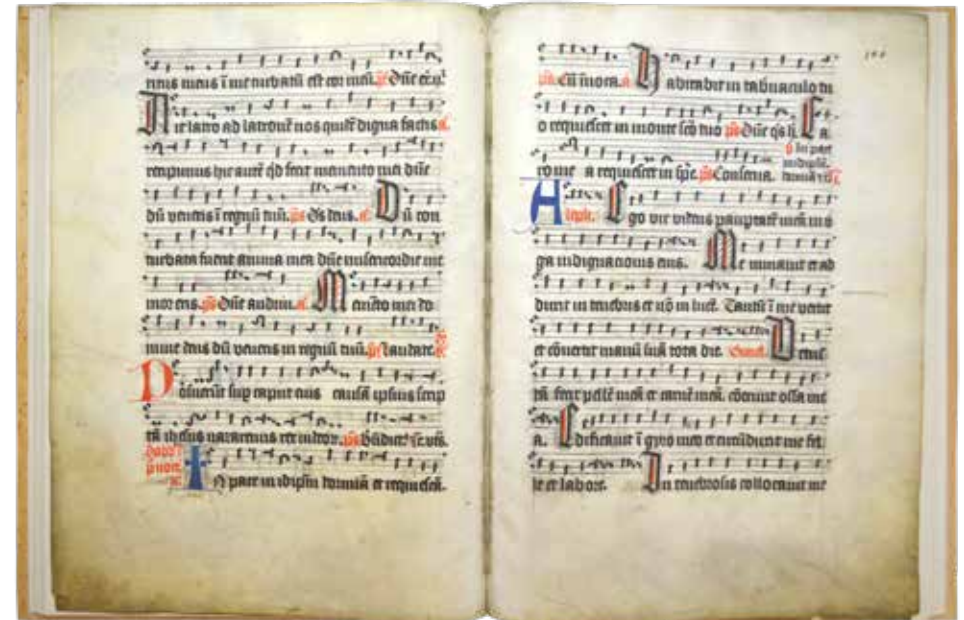 ritus meus ī me turbatū est cor meū. ps Dn̄e
Dixit latro ad latronē nos quid' digna factis
recipimus hic autē qd fecit memento mei dn̄e
dū veneris ī regnū tuū. ps Ds deus. a. Dū con
turbata fuerit anima mea dn̄e misericordie me
mor eris. ps Dn̄e audiui. a. Memēto mei do
mine deus dū veneris in regnū tuū. ps laudate.
Posuerūt sup caput eius causā ipsius scrip
tā ihesus nazarenus rex iudeor. ps
In pace in idipm̄ dormiā et requiescā.
ps. Cū inuoca. a Habitabit in tabernaculo tu
o requiescet in monte sc̄o tuo ps Dn̄e qs h. Ca
In pace
ro me a requiescet in spe. ps Conserua.
Aleph. Ego vir videns paupertatē meā in
ga indignacionis eius. Me minauit et ad
duxit in tenebris et nō in lucē. Tantū ī me vertit
et cōuertit manū suā tota die. Vetus
tā fecit pellē meā et carnē meā. cōtriuit ossa me
a. Edificauit ī gyro meo et circūdedit me fel
le et labore. In tenebrosis collocauit me